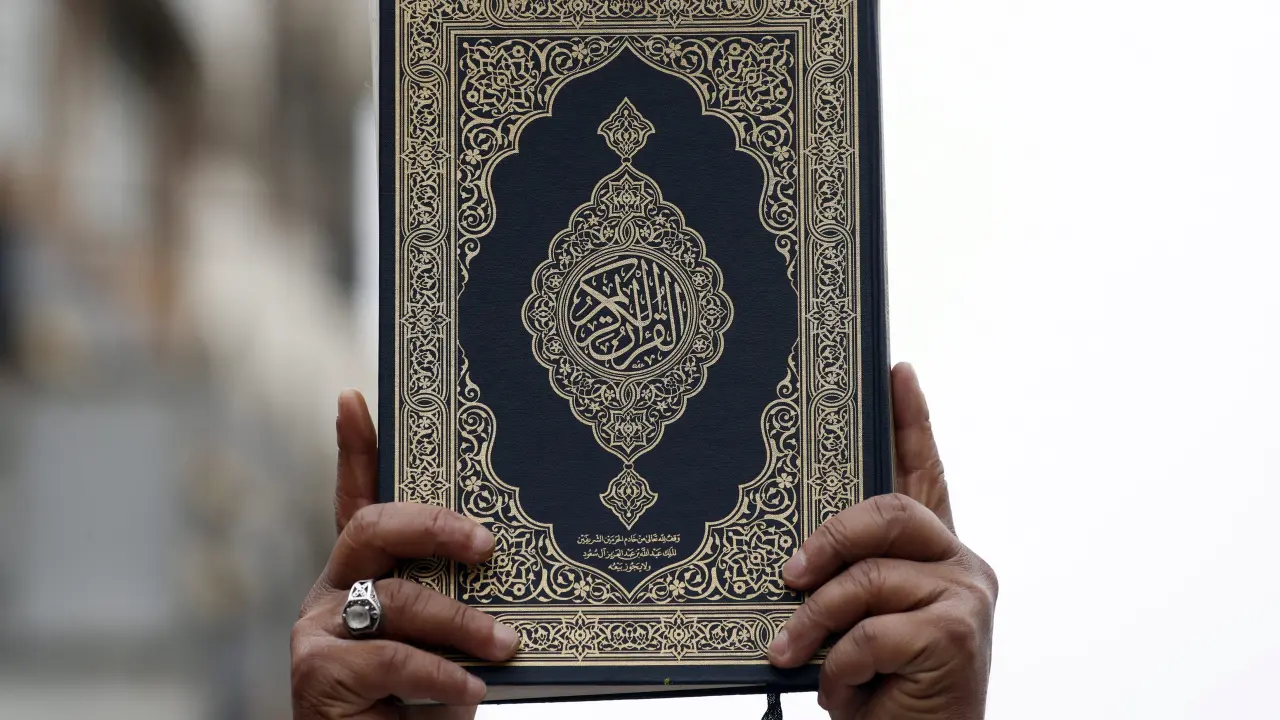 القرآن الكريم
وقف لله تعالى من خادم الحرمين الشريفين
الملك عبدالله بن عبدالعزيز آل سعود
ولا يجوز بيعه